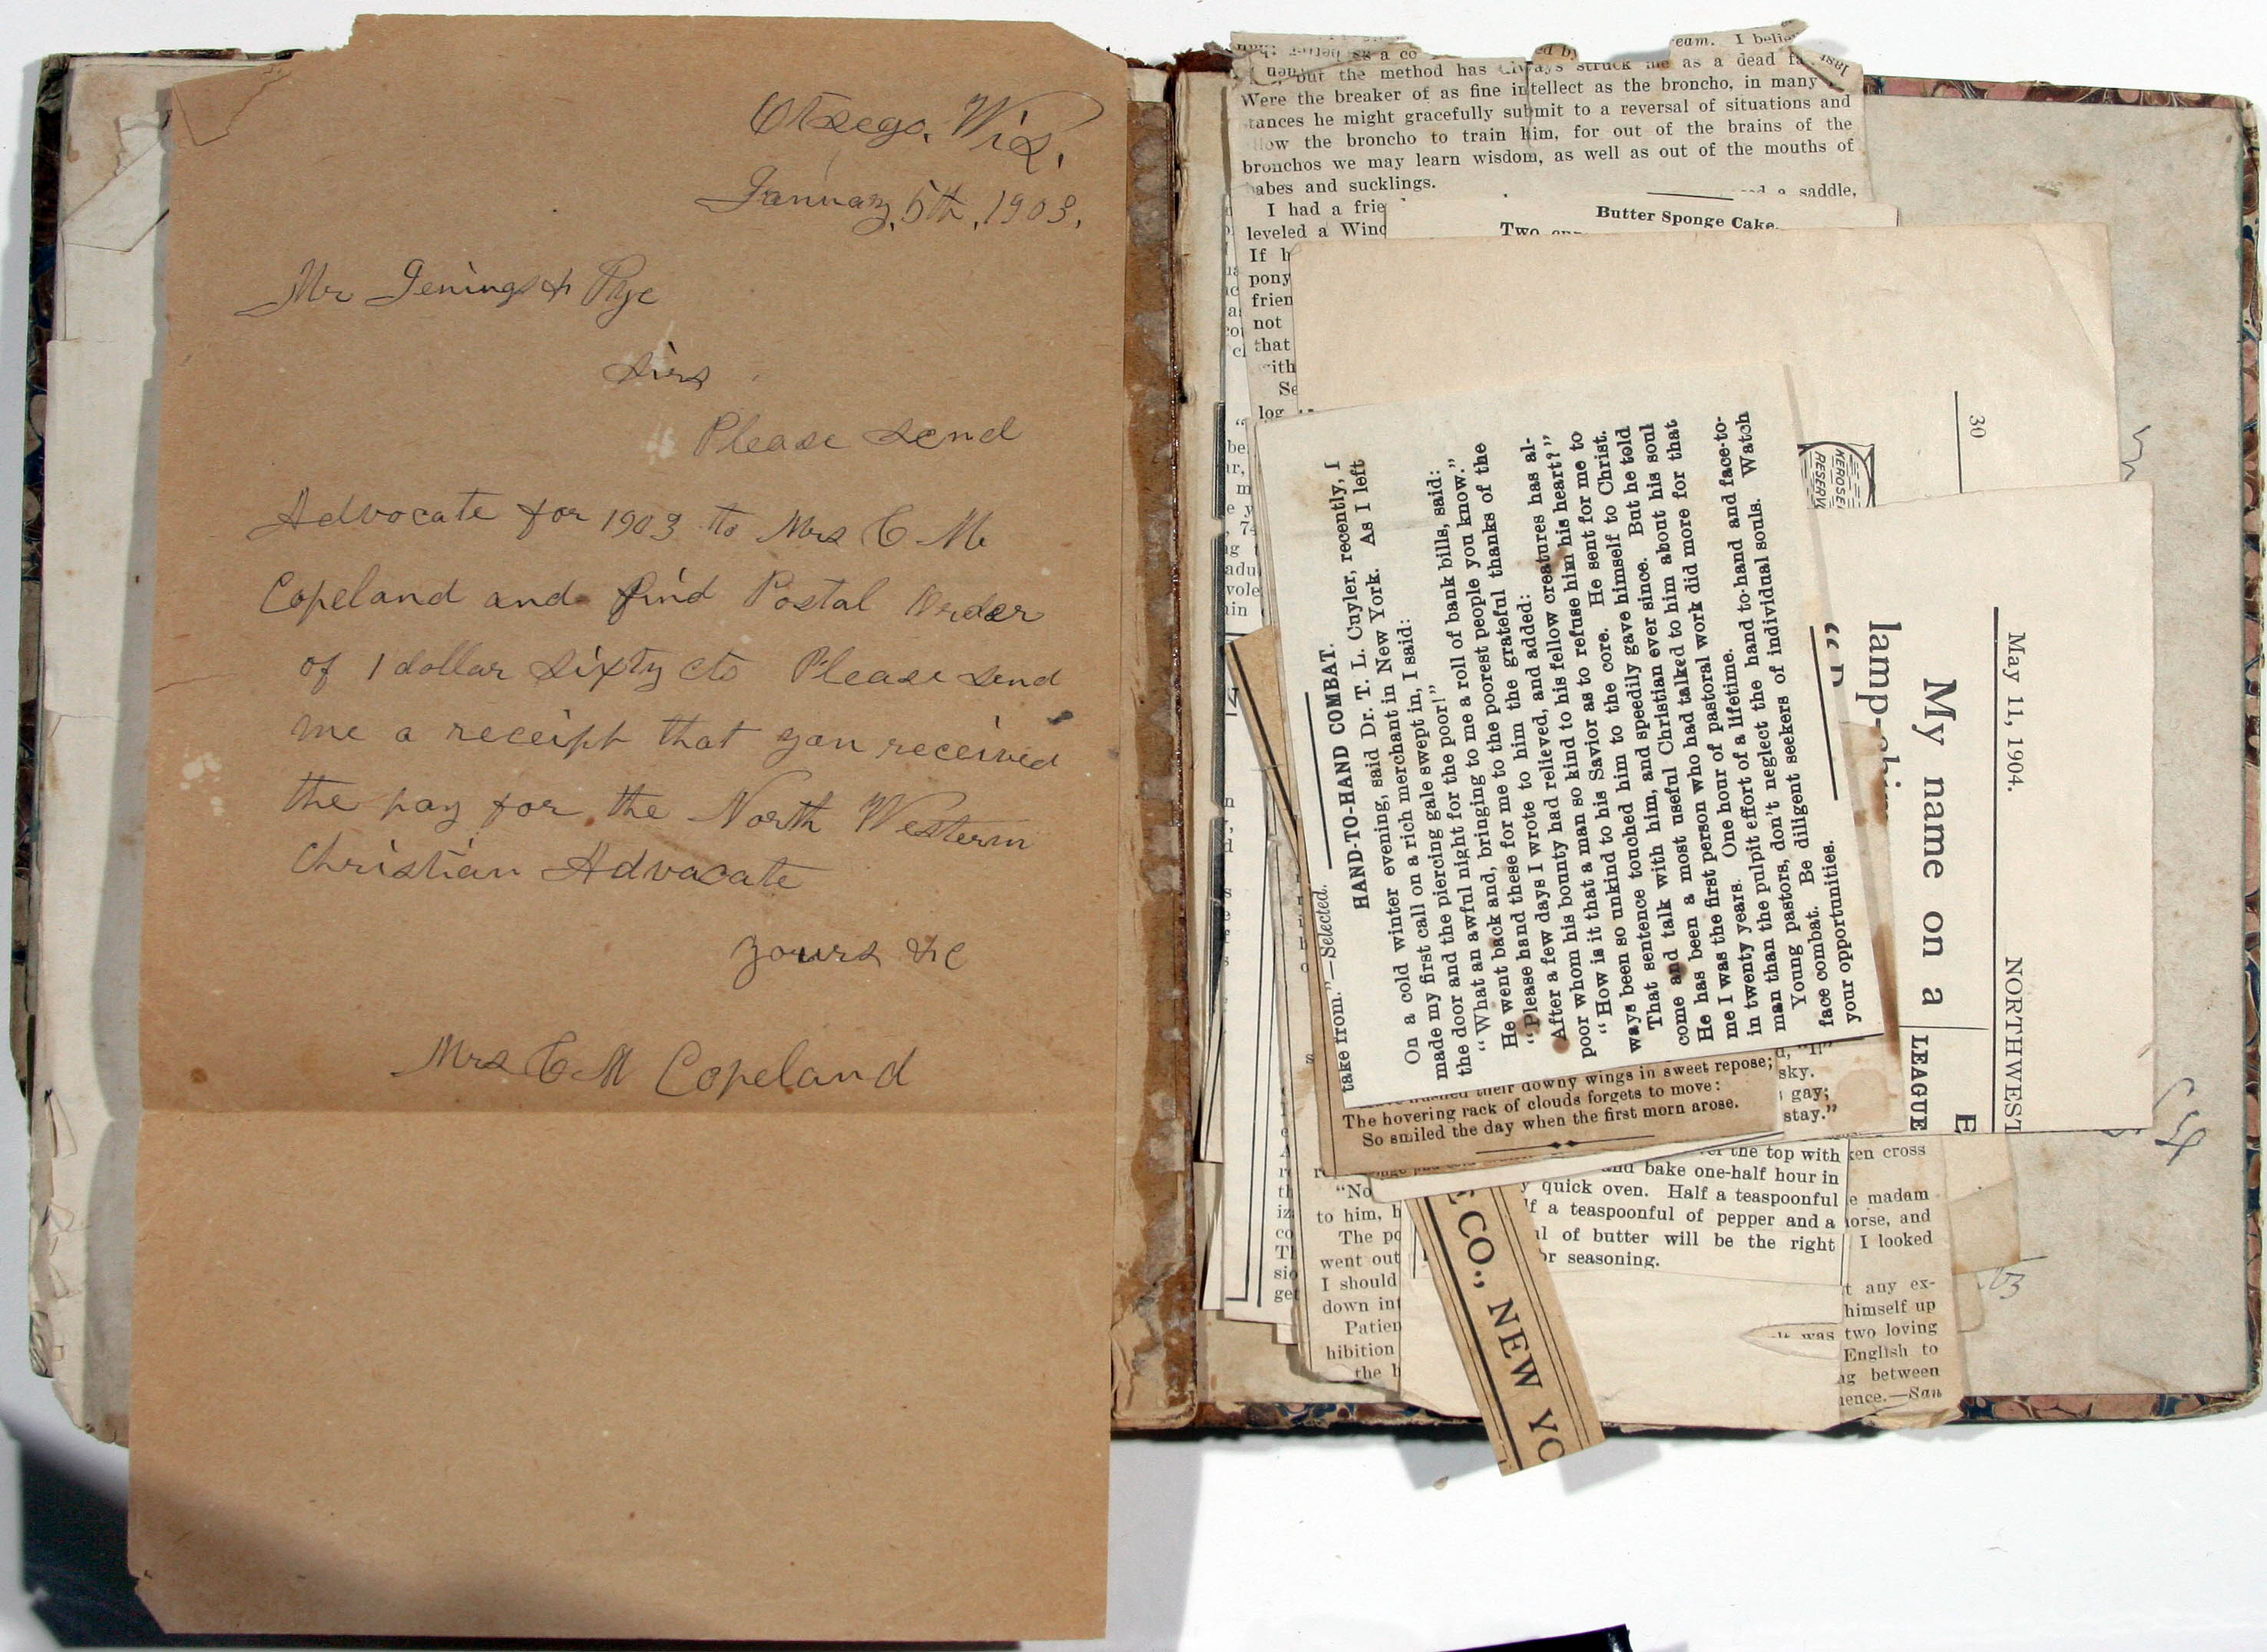 Otsego, Wis.
January, 5th, 1903,
Mr Jenings & Pye
Sirs
Please send
Advocate for 1903 to Mrs C M
Copeland and find Postal Order
of 1 dollar sixty cts Please send
me a receipt that you received
the pay for the North Western
Christian Advocate
Yours &c
Mrs C M Copeland
as a co
eam. I belie
but the method has always struck me as a dead fa
Were the breaker of as fine intellect as the broncho, in many
tances he might gracefully submit to a reversal of situations and
ow the broncho to train him, for out of the brains of the
bronchos we may learn wisdom, as well as out of the mouths of
babes and sucklings.
a saddle,
I had a frie
leveled a Winc
If h
pony
frien
not
that
with
Se
log
Butter Sponge Cake.
Two
30
KEROSE
RESERV
take from."—Selected.
HAND-TO-HAND COMBAT.
On a cold winter evening, said Dr. T. L. Cuyler, recently, I
made my first call on a rich merchant in New York. As I left
the door and the piercing gale swept in, I said:
"What an awful night for the poor!"
He went back and, bringing to me a roll of bank bills, said:
"Please hand these for me to the poorest people you know."
After a few days I wrote to him the grateful thanks of the
poor whom his bounty had relieved, and added:
"How is it that a man so kind to his fellow creatures has al-
ways been so unkind to his Savior as to refuse him his heart?"
That sentence touched him to the core. He sent for me to
come and talk with him, and speedily gave himself to Christ.
He has been a most useful Christian ever since. But he told
me I was the first person who had talked to him about his soul
in twenty years. One hour of pastoral work did more for that
man than the pulpit effort of a lifetime.
Young pastors, don't neglect the hand-to-hand and face-to-
face combat. Be diligent seekers of individual souls. Watch
your opportunities.
May 11, 1904.
NORTHWEST
E
LEAGUE
My name on a
lamp-chim
their downy wings in sweet repose;
The hovering rack of clouds forgets to move:
So smiled the day when the first morn arose.
sky.
gay;
stay."
the top with
and bake one-half hour in
quick oven. Half a teaspoonful
lf a teaspoonful of pepper and a
of butter will be the right
or seasoning.
ken cross
e madam
horse, and
I looked
t any ex-
himself up
it was two loving
English to
ng between
ience.—San
"No
to him, h
The po
went out
I should
down int
Patien
hibition
the h
CO., NEW YO